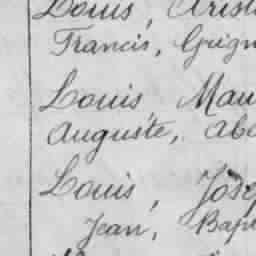 Louis, Arist
Francis, Grign
Louis Mau
Auguste, Abo
Louis, Jose
Jean, Bapt